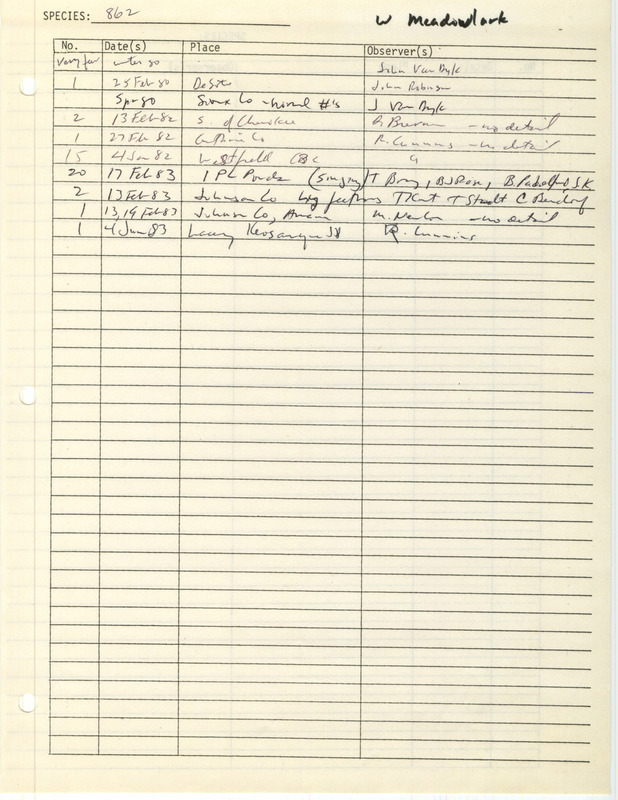 SPECIES: 862 W Meadowlark
No. Date(s) Place Observer(s)
Very few winter 80 John Van Dyk
1 25 Feb 80 DeSoto John Robinson
Spr 80 Sioux Co - normal #'s J Van Dyk
2 13 Feb 82 S. of Cherokee - no detail
1 27 Feb 82 Guthrie Co R. Cummins - no detail
15 4 Jan 82 Westfield CBC
20 17 Feb 83 I PL Ponds (singing) T Bray, B J Rose, B Padelford SK
2 13 Feb 83 Johnson Co T Kent T Staudt C Bendorf
1 13, 19 Feb 83 Johnson Co, - no detail
1 4 Jun 83 Lacey Keosauqua SP R. Cummins